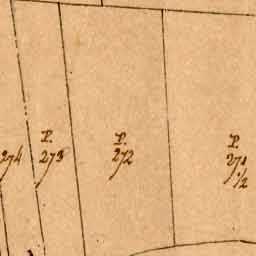 274
P.
273
P.
272
P.
271
1/2